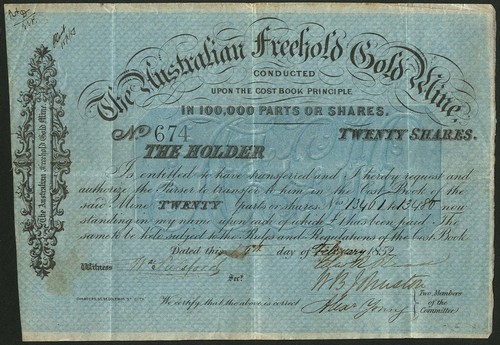 The Australian Freehold Gold Mine,
CONDUCTED
UPON THE COST BOOK PRINCIPLE
IN 100,000 PARTS OR SHARES.
No 674 TWENTY SHARES.
THE HOLDER
Is entitled to have transferred and I hereby request and
authorize the Purser to transfer to him in the Cost Book of the
said Mine TWENTY parts or shares No 13461 to 13480 now
standing in my name upon each of which £1 has been paid. The
same to be held subject to the Rules and Regulations of the Cost Book.
Dated this day of February 1852
Witness Secy.
W B Johnston
Alexr Young
Two Members
of the
Committee
We certify that the above is correct
The Australian Freehold Gold Mine.